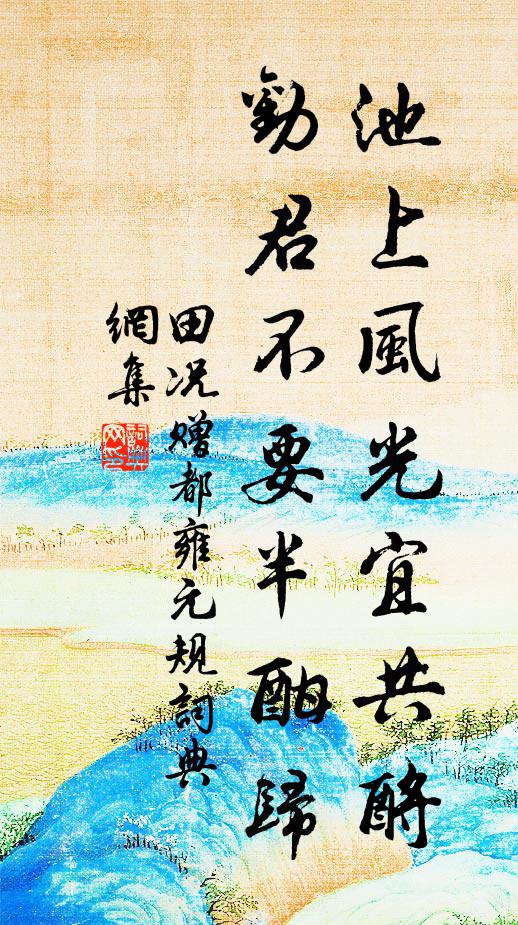 池上風光宜共醉
勸君不要半酣歸
田况贈都雍元規詞典
網集